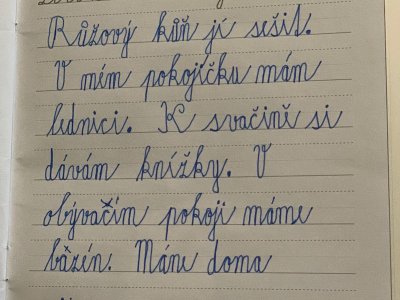 Růžový kůň jí sešit.
V mém pokojíčku mám
lednici. K svačině si
dávám knížky. V
obývačím pokoji máme
bazén. Máme doma